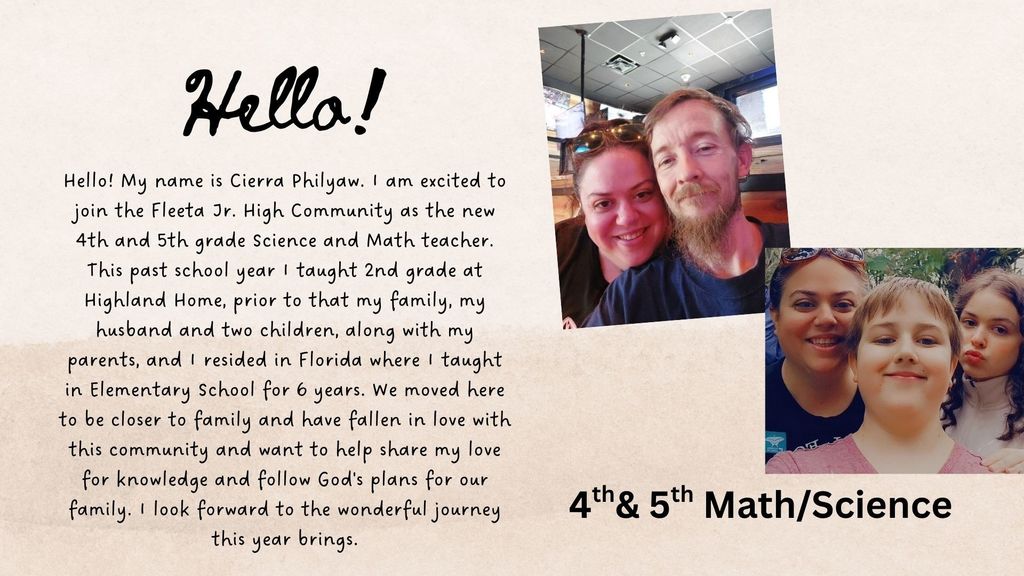 Hello!
Hello! My name is Cierra Philyaw. I am excited to
join the Fleeta Jr. High Community as the new
4th and 5th grade Science and Math teacher.
This past school year I taught 2nd grade at
Highland Home, prior to that my family, my
husband and two children, along with my
parents, and I resided in Florida where I taught
in Elementary School for 6 years. We moved here
to be closer to family and have fallen in love with
this community and want to help share my love
for knowledge and follow God's plans for our
family. I look forward to the wonderful journey
this year brings.
4th& 5th Math/Science